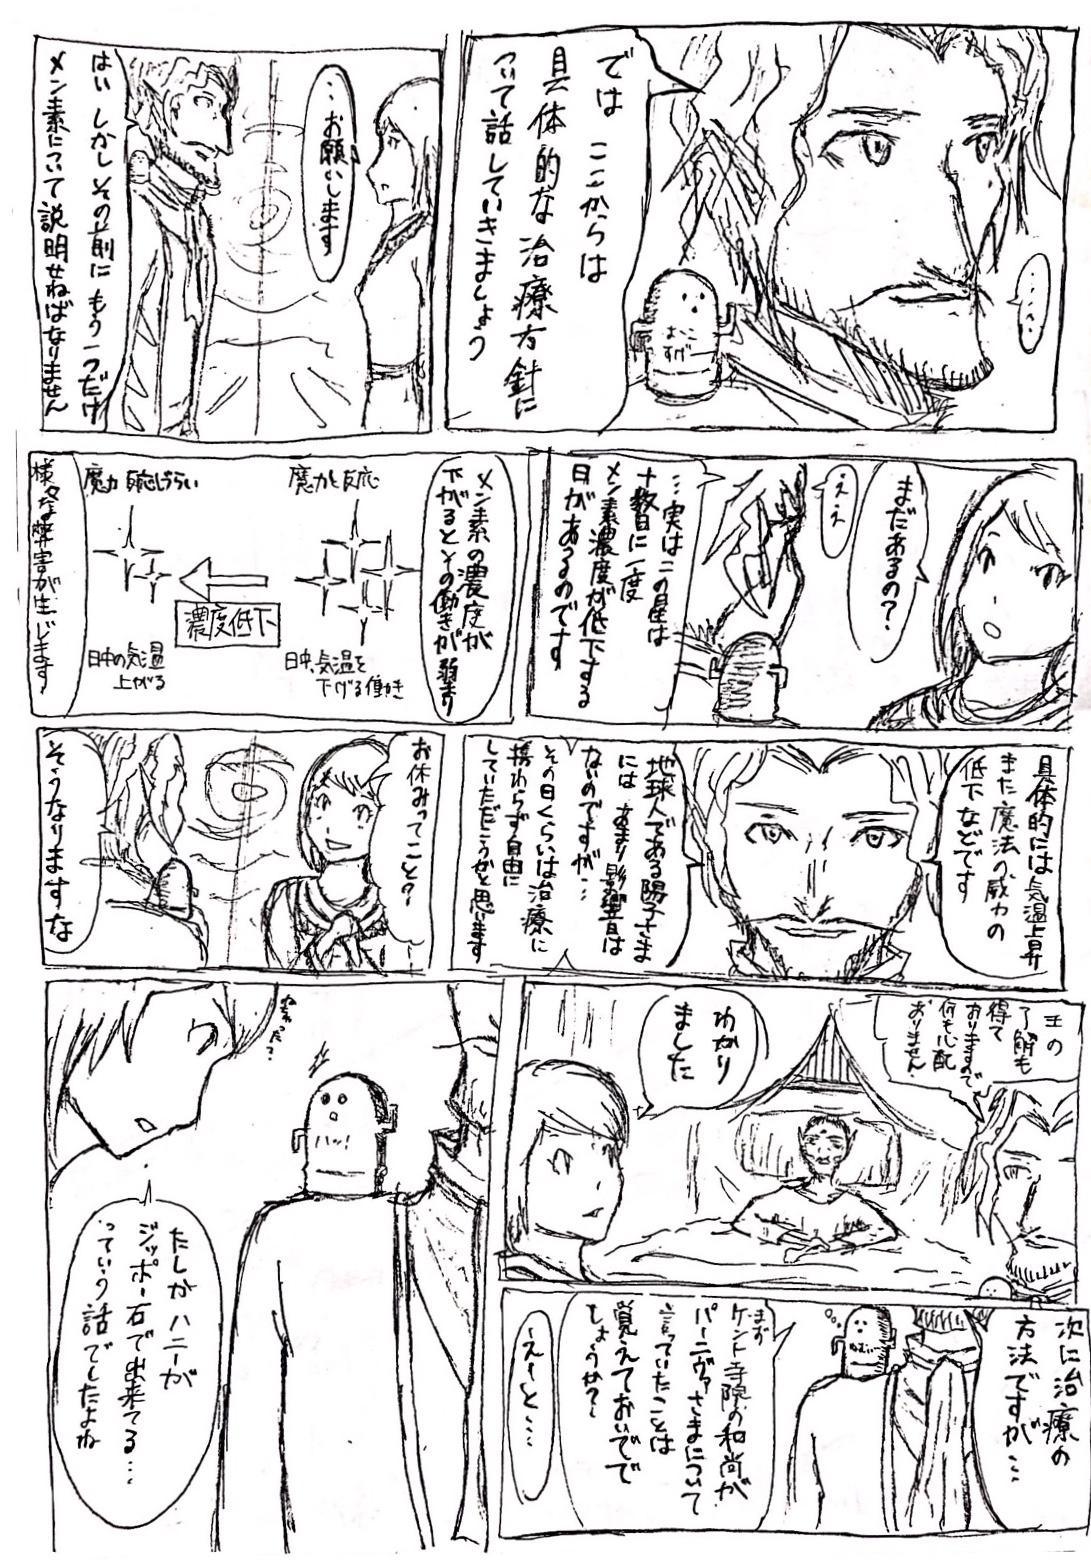 では ここからは
具体的な治療方針に
ついて話していきましょう
……
‥お願いします
はい しかしその前に もう一つだけ
メン素について説明せねばなりません
まだあるの?
ええ
…実はこの星は
十数日に一度
メン素濃度が低下する
日があるのです
メン素の濃度が
下がるとその働きが弱まり
魔力と反応
日中、気温を
下げる働き
濃度低下
魔力 反応しづらい
日中の気温
上がる
様々な障害が生じます
具体的には気温上昇
また魔法の威力の
低下などです
地球人である陽子さま
には あまり影響は
ないのですが…
その日くらいは治療に
携わらず自由に
していただこうかと思います
お休みってこと?
そうなりますな
王の
了解も
得て
おりますので
何も心配
おりません
わかり
ました
次に治療の
方法ですが…
まず
ケント寺院の和尚が
パーニヴァさまについて
言っていたことは
覚えておいでで
しょうか?
…えーと…
ハッ!
たしかハニーが
ジッポー石で出来てる…
っていう話でしたよね